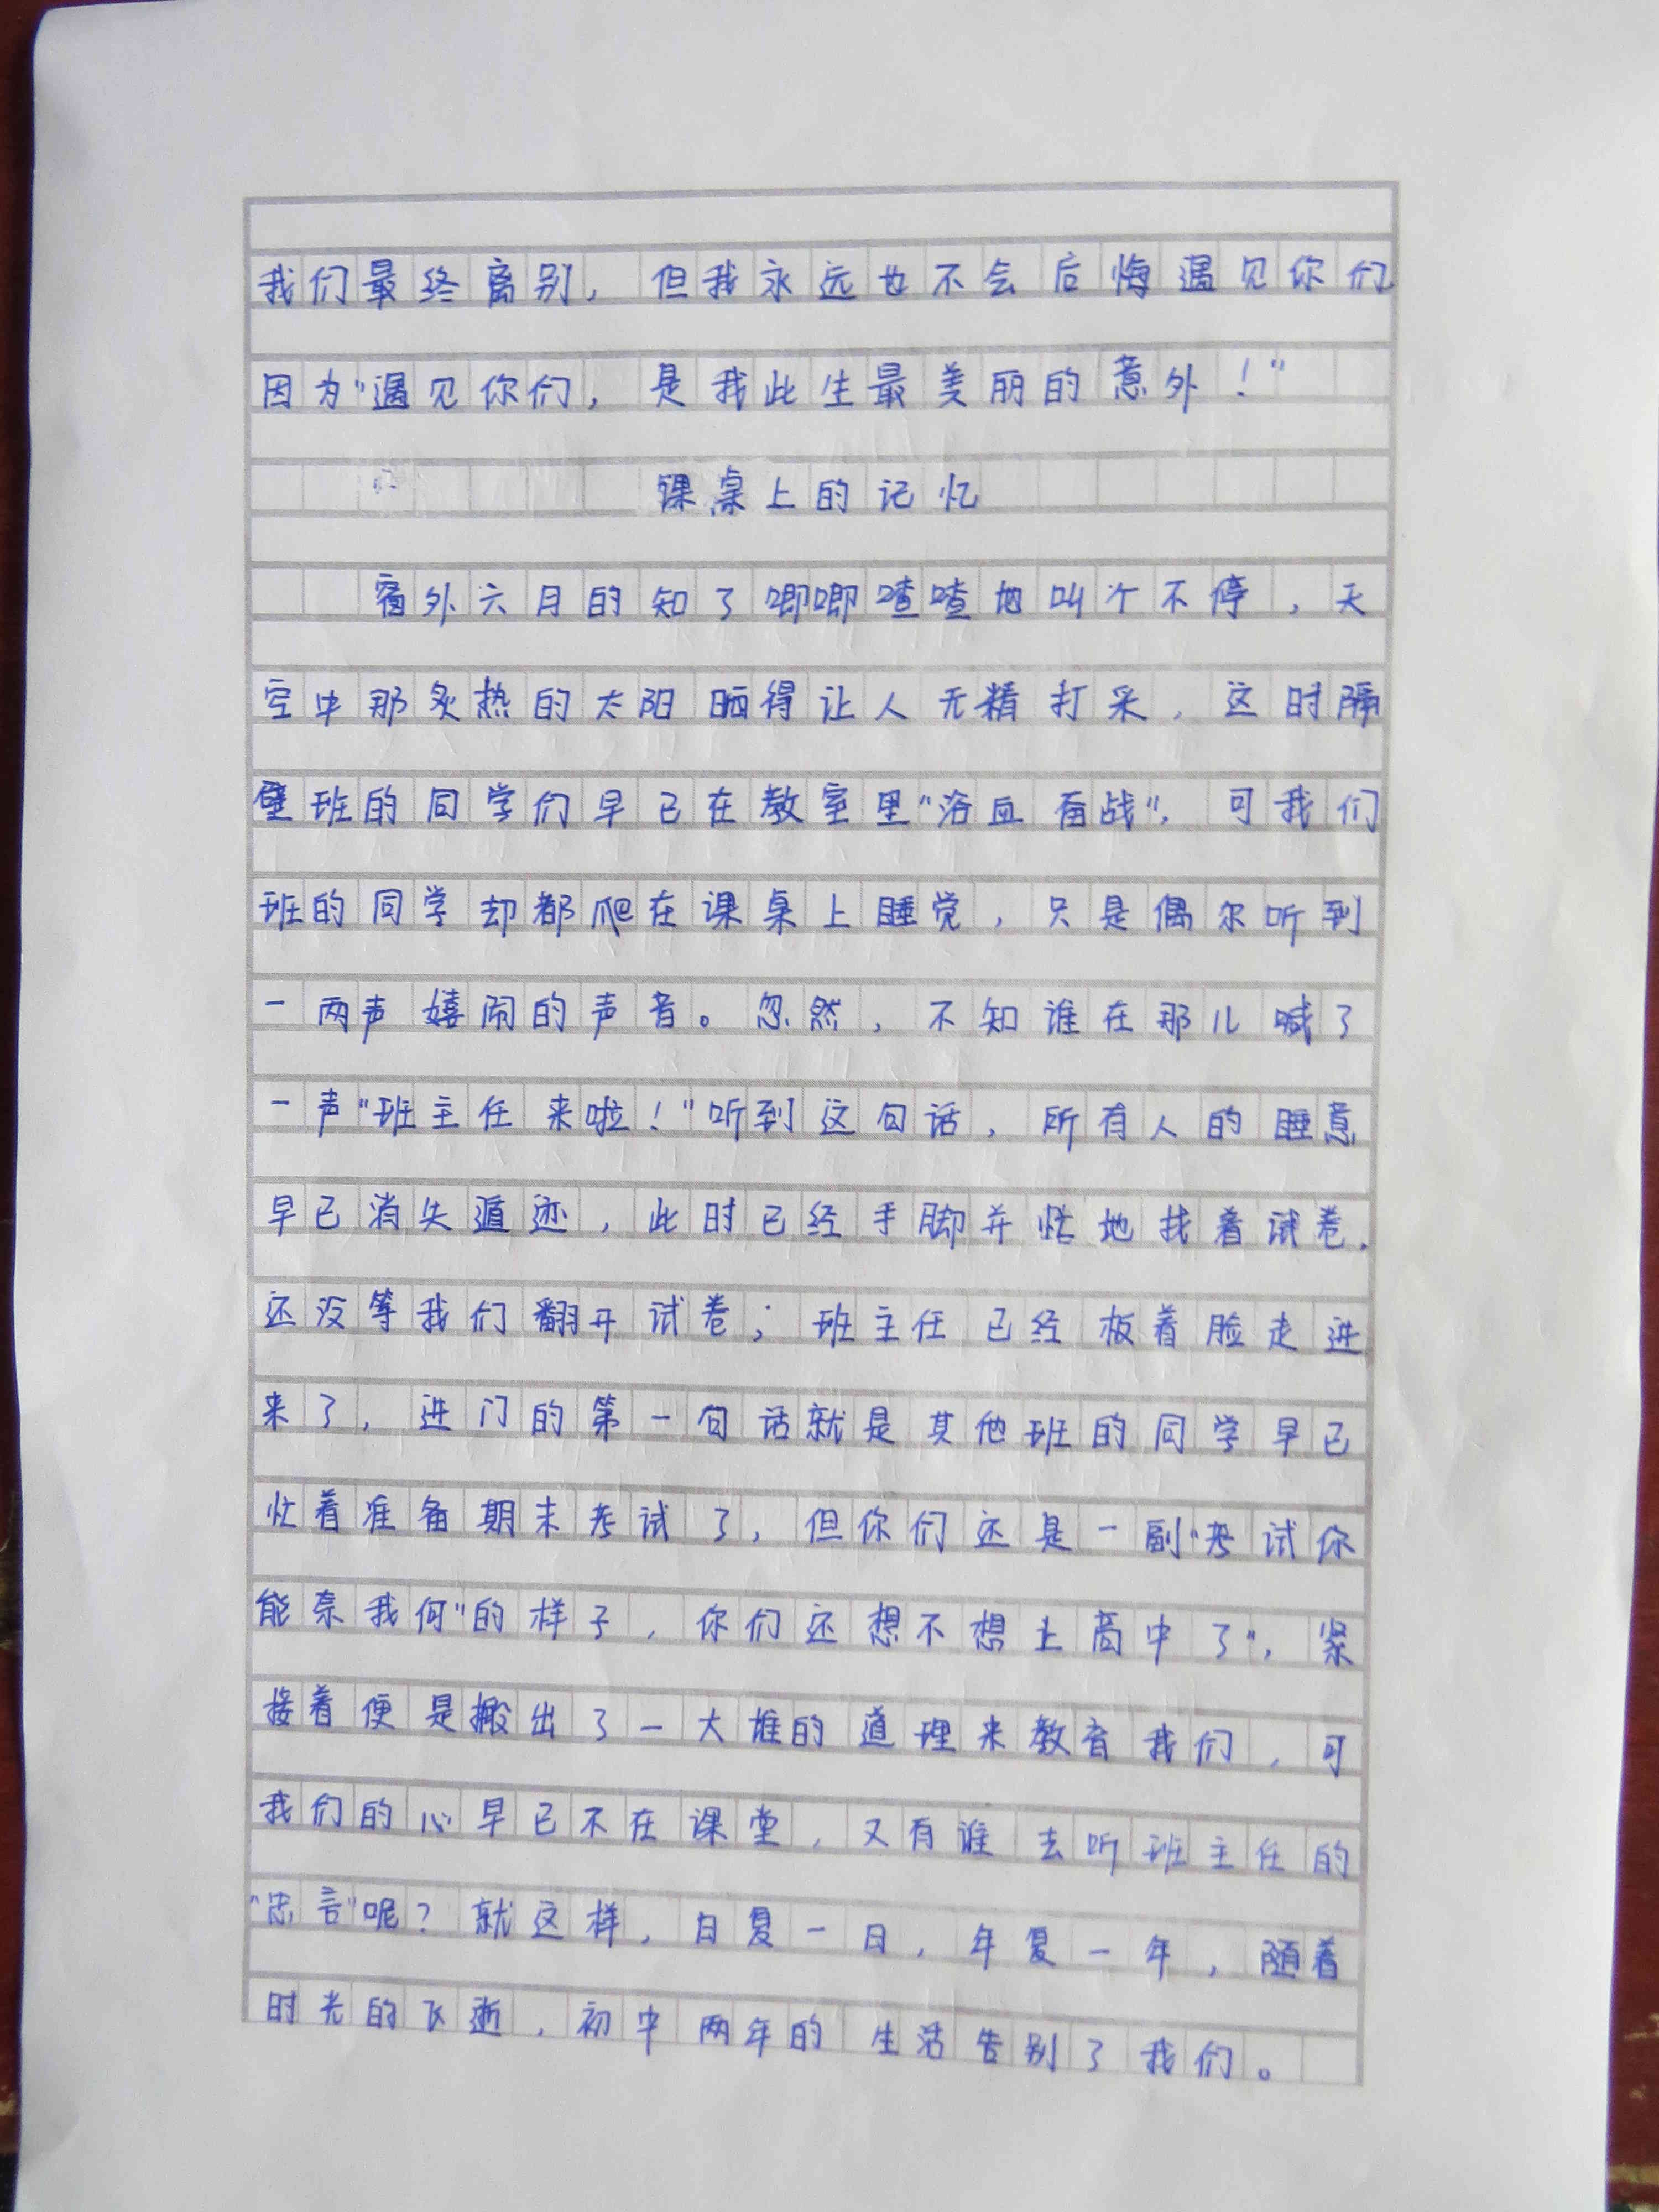 我们最终离别，但我永远也不会后悔遇见你们
因为"遇见你们，是我此生最美丽的意外！"
课桌上的记忆
窗外六月的知了唧唧喳喳地叫个不停，天
空中那炙热的太阳晒得让人无精打采，这时隔
壁班的同学们早已在教室里"浴血奋战"，可我们
班的同学却都爬在课桌上睡觉，只是偶尔听到
一两声嬉闹的声音。忽然，不知谁在那儿喊了
一声"班主任来啦！"听到这句话，所有人的睡意
早已消失遁迹，此时已经手脚并忙地找着试卷.
还没等我们翻开试卷；班主任已经板着脸走进
来了，进门的第一句话就是其他班的同学早已
忙着准备期末考试了，但你们还是一副"考试你
能奈我何"的样子，你们还想不想上高中了"，紧
接着便是搬出了一大堆的道理来教育我们，可
我们的心早已不在课堂，又有谁去听班主任的
"忠言"呢？就这样，日复一日，年复一年，随着
时光的飞逝，初中两年的生活告别了我们。